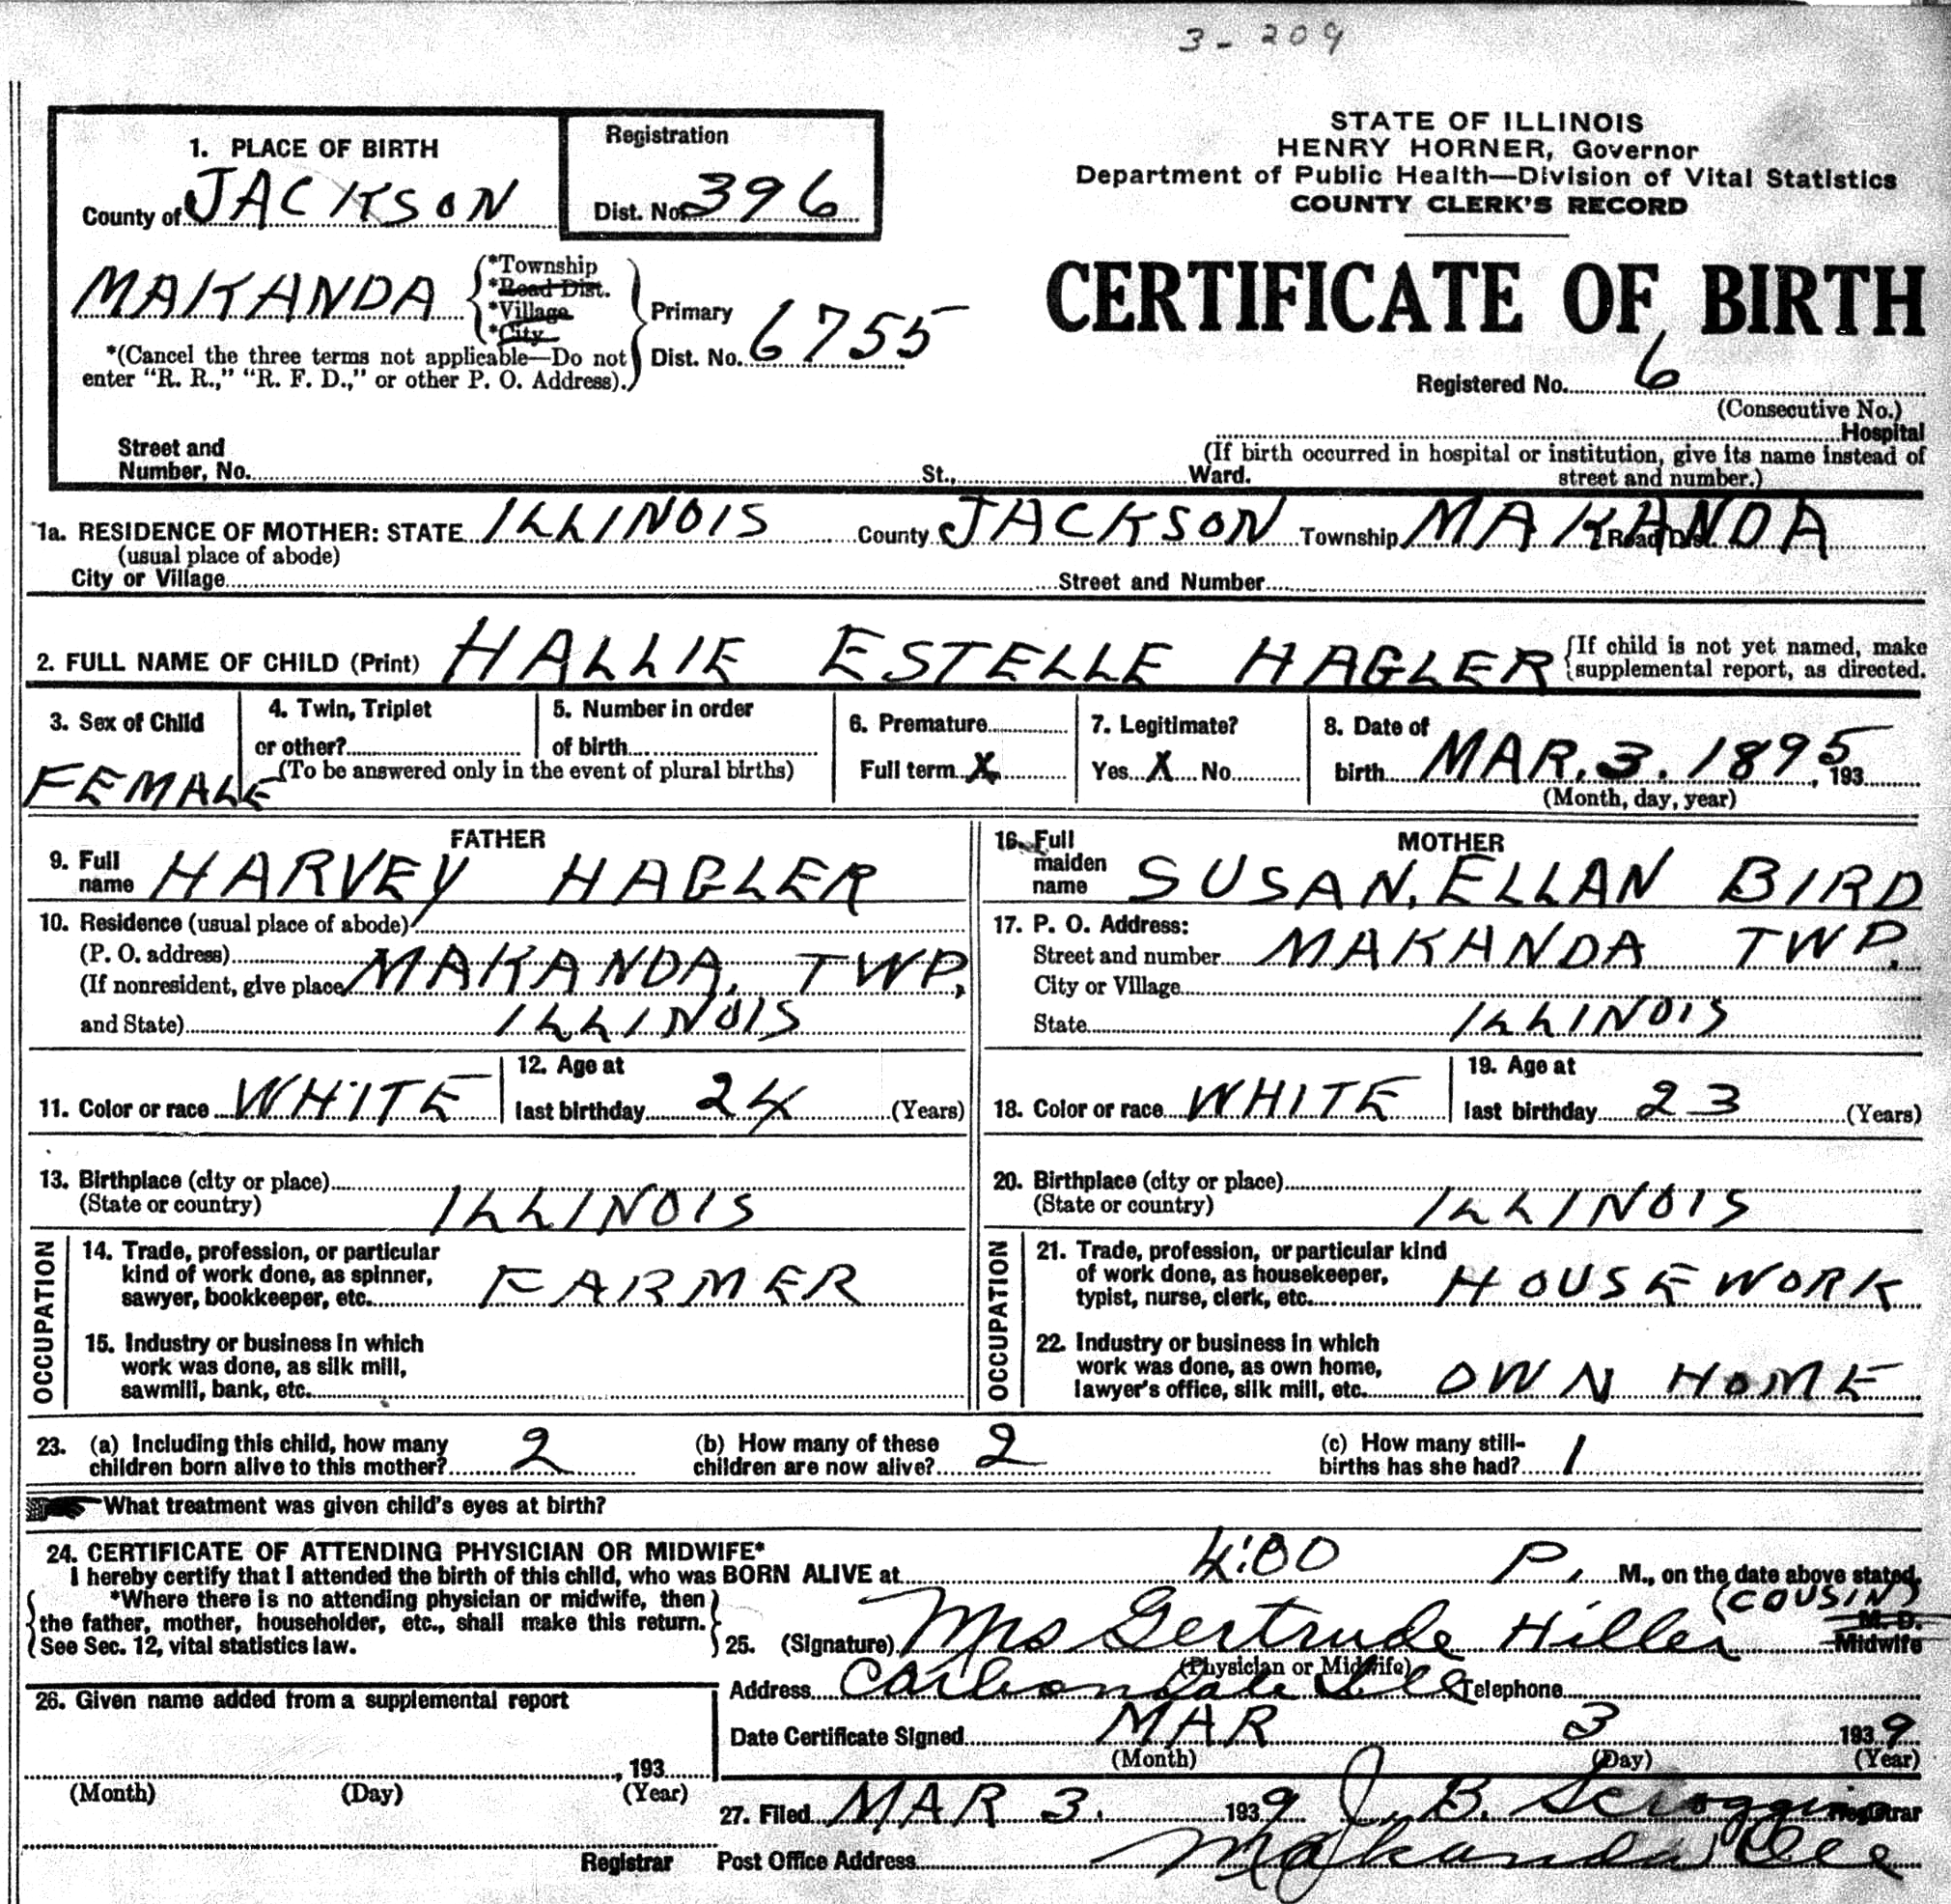 3-209
1. PLACE OF BIRTH
County of JACKSON
Registration
Dist. No. 396
STATE OF ILLINOIS
HENRY HORNER, Governor
Department of Public Health—Division of Vital Statistics
COUNTY CLERK'S RECORD
CERTIFICATE OF BIRTH
MAKANDA
*Township
*Road Dist.
*Village
*City
Primary
Dist. No. 6755
*(Cancel the three terms not applicable—Do not
enter "R. R.," "R. F. D.," or other P. O. Address).
Registered No. 6
(Consecutive No.)
Hospital
Street and
Number, No. St., Ward.
(If birth occurred in hospital or institution, give its name instead of
street and number.)
1a. RESIDENCE OF MOTHER: STATE ILLINOIS County JACKSON Township MAKANDA
(usual place of abode)
City or Village Street and Number
2. FULL NAME OF CHILD (Print) HALLIE ESTELLE HAGLER
{If child is not yet named, make
supplemental report, as directed.
3. Sex of Child
FEMALE
4. Twin, Triplet
or other?
5. Number in order
of birth
(To be answered only in the event of plural births)
6. Premature
Full term X
7. Legitimate?
Yes X No
8. Date of
birth MAR. 3. 1895, 193
(Month, day, year)
FATHER
9. Full
name HARVEY HAGLER
10. Residence (usual place of abode)
(P. O. address)
(If nonresident, give place MAKANDA, TWP,
and State) ILLINOIS
11. Color or race WHITE
12. Age at
last birthday 24 (Years)
13. Birthplace (city or place)
(State or country) ILLINOIS
OCCUPATION
14. Trade, profession, or particular
kind of work done, as spinner,
sawyer, bookkeeper, etc. FARMER
15. Industry or business in which
work was done, as silk mill,
sawmill, bank, etc.
MOTHER
16. Full
maiden
name SUSAN, ELLAN BIRD
17. P. O. Address:
Street and number MAKANDA TWP.
City or Village
State ILLINOIS
18. Color or race WHITE
19. Age at
last birthday 23 (Years)
20. Birthplace (city or place)
(State or country) ILLINOIS
OCCUPATION
21. Trade, profession, or particular kind
of work done, as housekeeper,
typist, nurse, clerk, etc. HOUSEWORK
22. Industry or business in which
work was done, as own home,
lawyer's office, silk mill, etc. OWN HOME
23. (a) Including this child, how many
children born alive to this mother? 2
(b) How many of these
children are now alive? 2
(c) How many still-
births has she had? 1
What treatment was given child's eyes at birth?
24. CERTIFICATE OF ATTENDING PHYSICIAN OR MIDWIFE*
I hereby certify that I attended the birth of this child, who was BORN ALIVE at 4:00 P. M., on the date above stated.
*Where there is no attending physician or midwife, then
the father, mother, householder, etc., shall make this return.
See Sec. 12, vital statistics law.
(COUSIN)
25. (Signature) Mrs Gertrude Hiller
M. D.
Midwife
(Physician or Midwife)
Address Carbondale Ills Telephone
Date Certificate Signed MAR 3 1939
(Month) (Day) (Year)
26. Given name added from a supplemental report
, 193
(Month) (Day) (Year)
Registrar
27. Filed MAR 3. 1939 J. B. Scroggins Registrar
Post Office Address Makanda Ill